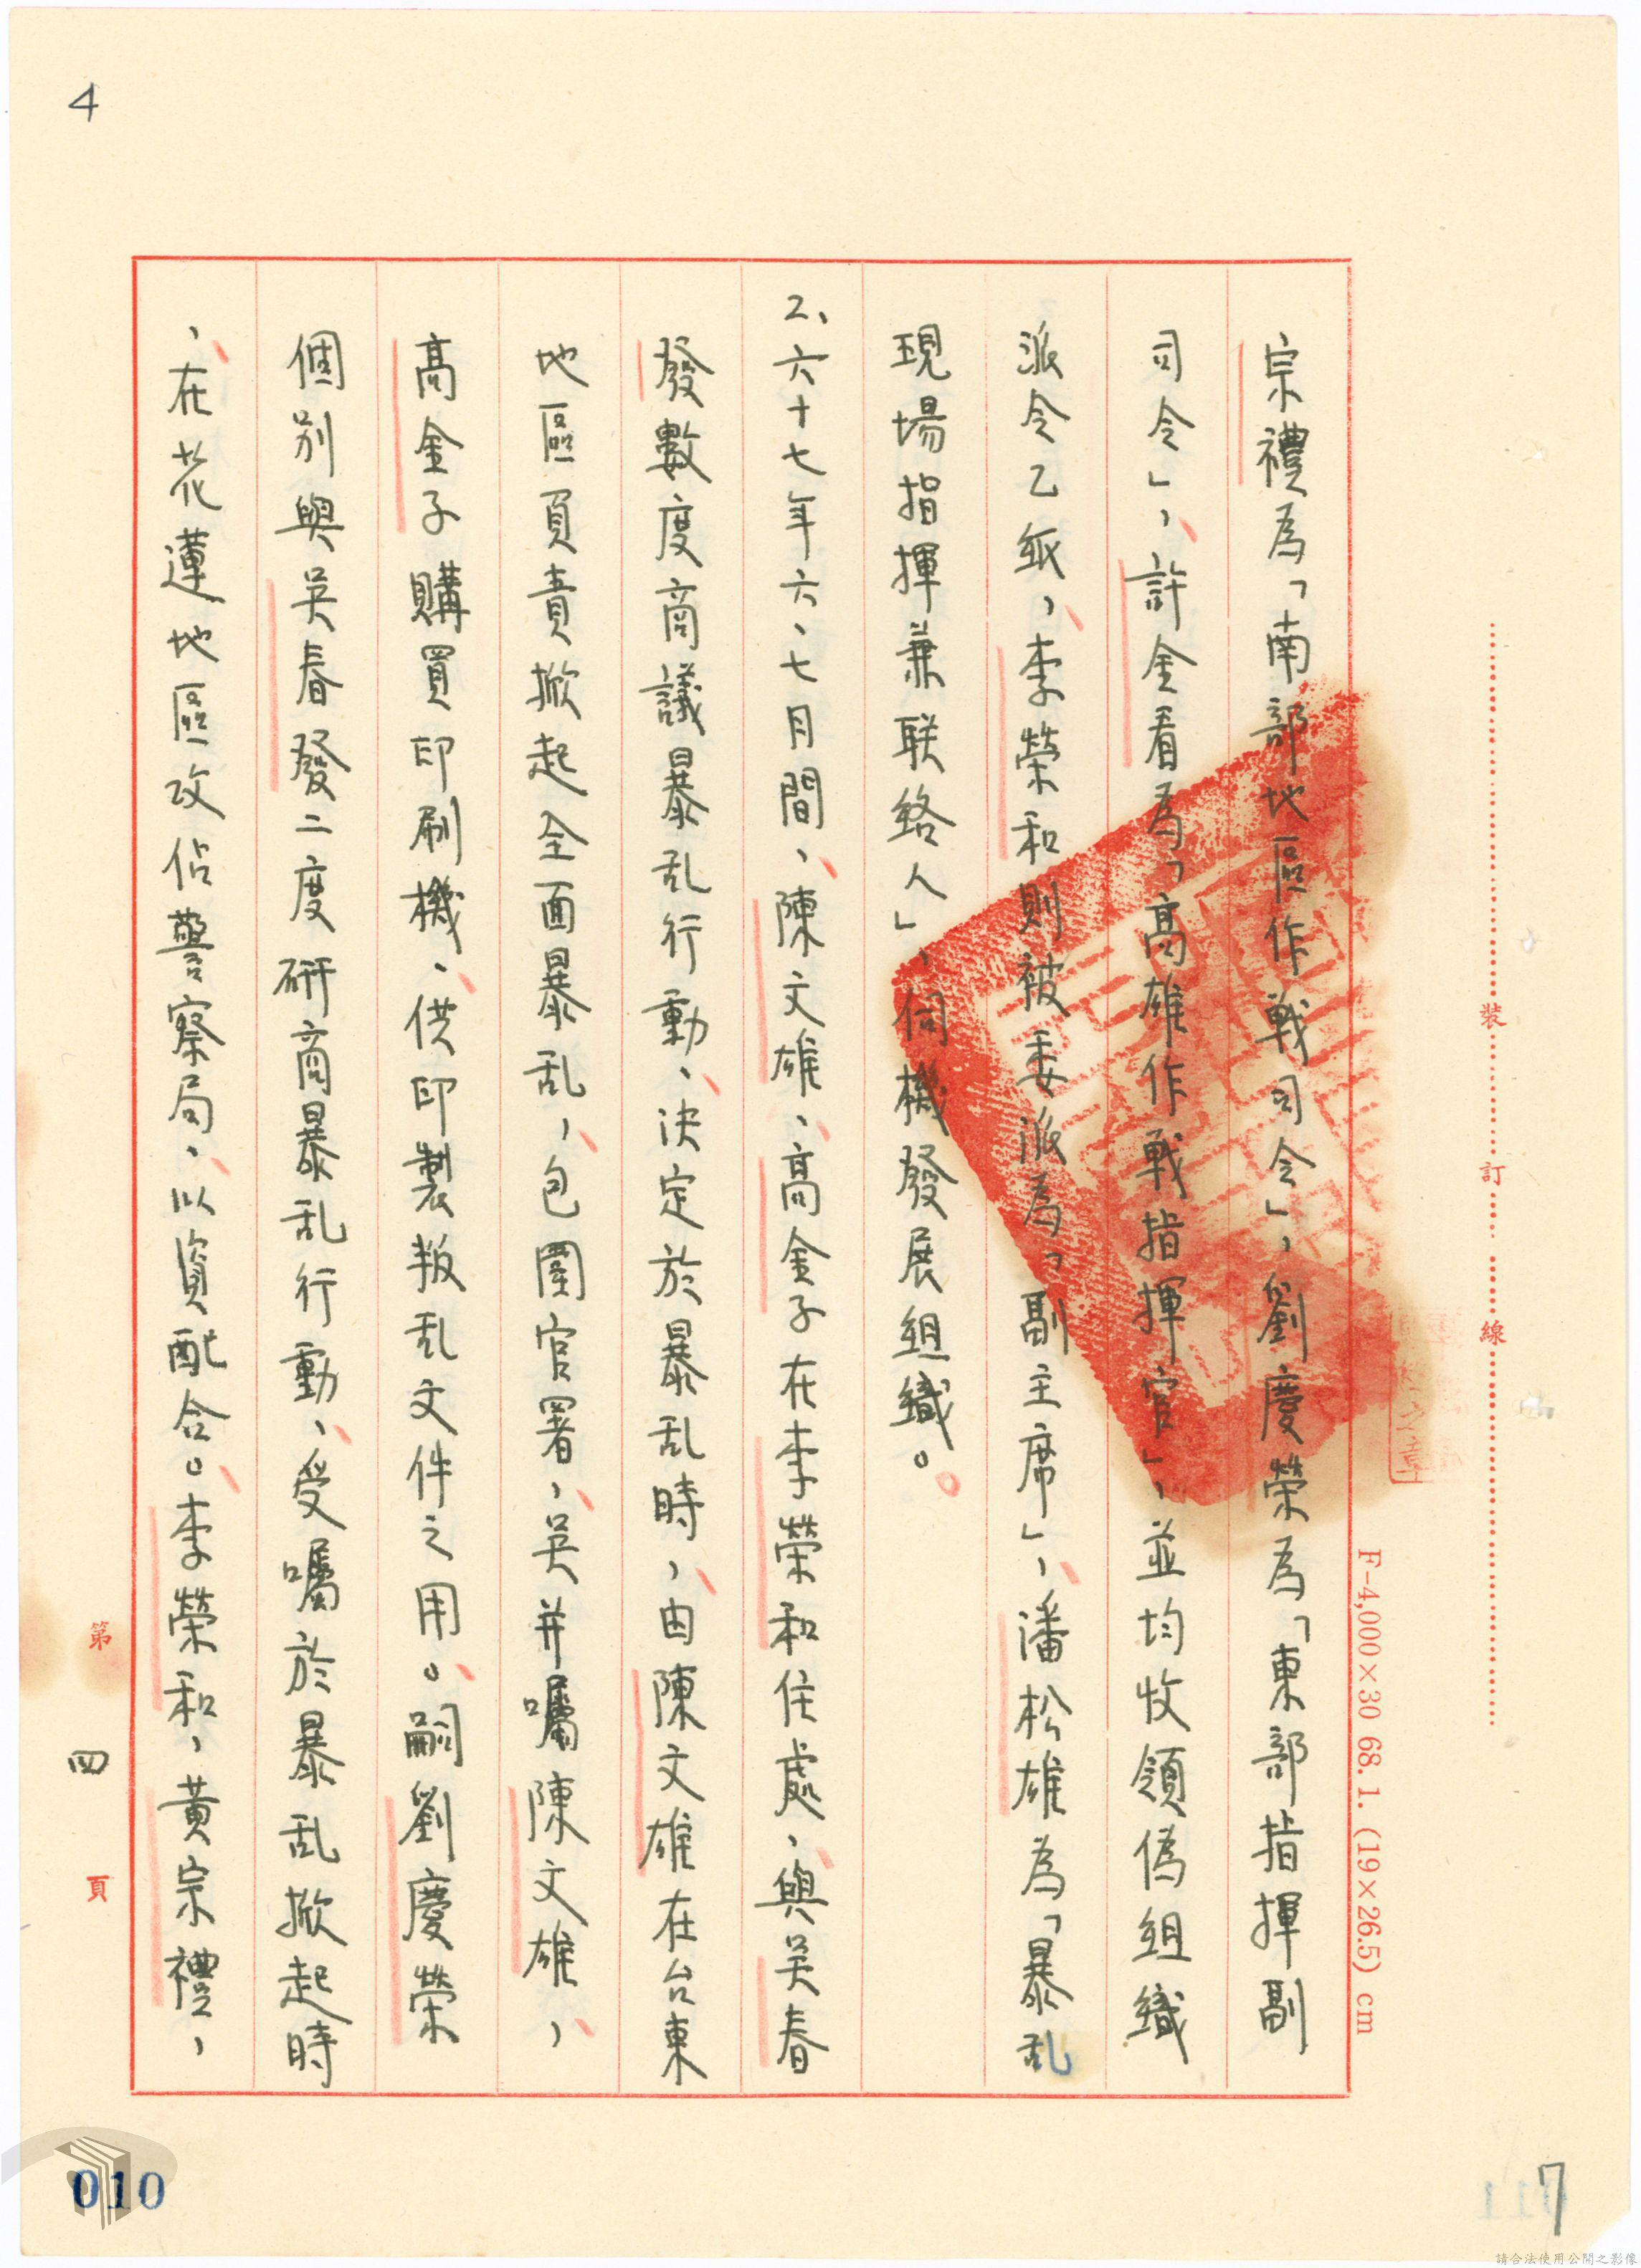 4
宗禮為「南部地區作戰司令」，劉慶榮為「東部指揮副
司令」，許金看為「高雄作戰指揮官」，並均收領偽組織
派令乙紙，李榮和則被委派為「副主席」，潘松雄為「暴乱
現場指揮兼联絡人」，伺機發展組織。
2、六十七年六、七月間，陳文雄、高金子在李榮和住處，與吳春
發數度商議暴乱行動，決定於暴乱時，由陳文雄在台東
地區負責掀起全面暴乱，包圍官署，吳并囑陳文雄，
高金子購買印刷機，供印製叛乱文件之用。嗣劉慶榮
個別與吳春發二度研商暴乱行動，受囑於暴乱掀起時
，在花蓮地區攻佔警察局，以資配合。李榮和，黃宗禮，
裝 訂 線
F-4,000×30 68.1. (19×26.5) cm
第 四 頁
010
7
011
請合法使用公開之影像